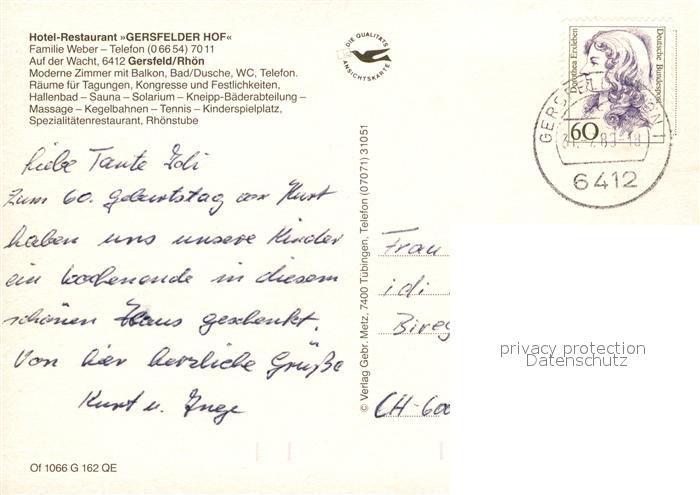 Hotel-Restaurant »GERSFELDER HOF«
Familie Weber – Telefon (0 66 54) 70 11
Auf der Wacht, 6412 Gersfeld/Rhön
Moderne Zimmer mit Balkon, Bad/Dusche, WC, Telefon.
Räume für Tagungen, Kongresse und Festlichkeiten,
Hallenbad – Sauna – Solarium – Kneipp-Bäderabteilung –
Massage – Kegelbahnen – Tennis – Kinderspielplatz,
Spezialitätenrestaurant, Rhönstube
DIE QUALITÄTS
ANSICHTSKARTE
Dorothea Erxleben
Deutsche Bundespost
60
6412
Liebe Tante Idi
Zum 60. Geburtstag von Kurt
haben uns unsere Kinder
ein Wochenende in diesem
schönen Haus geschenkt.
Von hier herzliche Grüße
Kurt u. Inge
© Verlag Gebr. Metz, 7400 Tübingen, Telefon (07071) 31051
Frau
idi
Bireg
CH-600
privacy protection
Datenschutz
Of 1066 G 162 QE